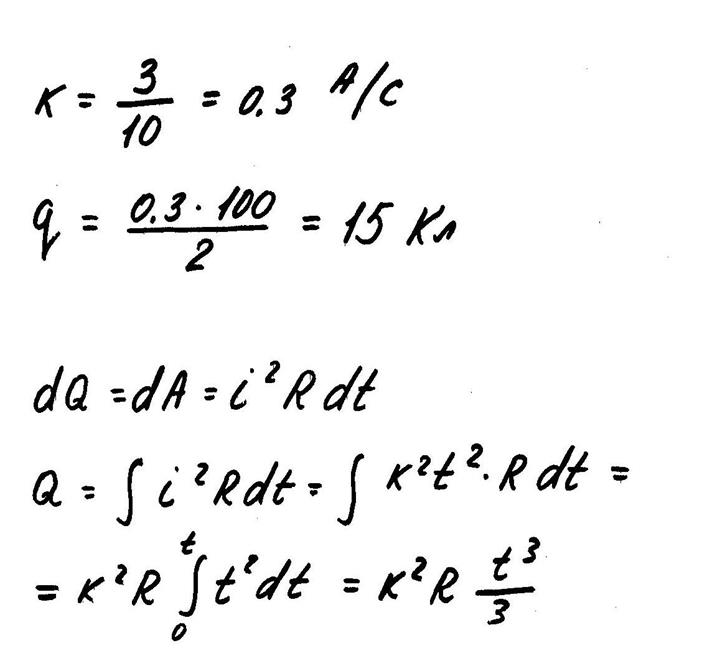 к = 3/10 = 0.3 А/с
q = 0.3 · 100/2 = 15 Кл
dQ = dA = i²R dt
Q = ∫ i²R dt = ∫ к²t² · R dt =
= к²R ∫₀ᵗ t² dt = к²R t³/3